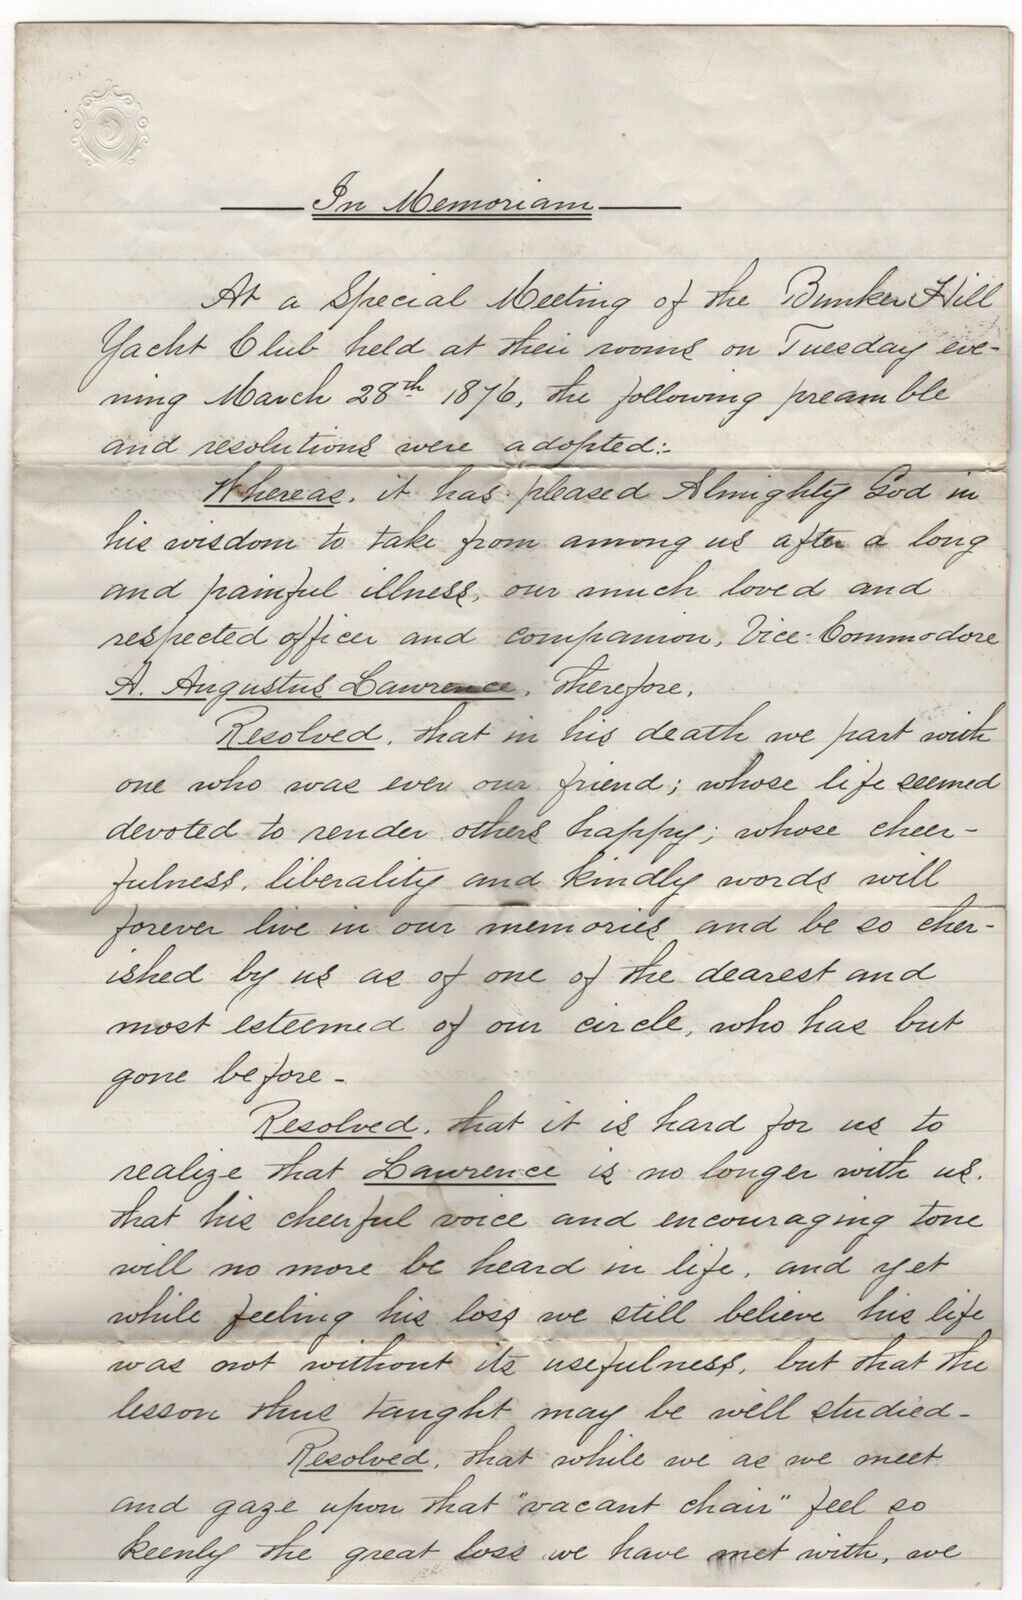 In Memoriam
At a Special Meeting of the Bunker Hill
Yacht Club held at their rooms on Tuesday eve-
ning March 28th 1876, the following preamble
and resolutions were adopted:-
Whereas, it has pleased Almighty God in
his wisdom to take from among us after a long
and painful illness, our much loved and
respected officer and companion, Vice-Commodore
A. Augustus Lawrence, therefore,
Resolved, that in his death we part with
one who was ever our friend; whose life seemed
devoted to render others happy; whose cheer-
fulness, liberality and kindly words will
forever live in our memories and be so cher-
ished by us as of one of the dearest and
most esteemed of our circle, who has but
gone before-
Resolved, that it is hard for us to
realize that Lawrence is no longer with us.
that his cheerful voice and encouraging tone
will no more be heard in life, and yet
while feeling his loss we still believe his life
was not without its usefulness, but that the
lesson thus taught may be well studied-
Resolved, that while we as we meet
and gaze upon that "vacant chair" feel so
keenly the great loss we have met with, we